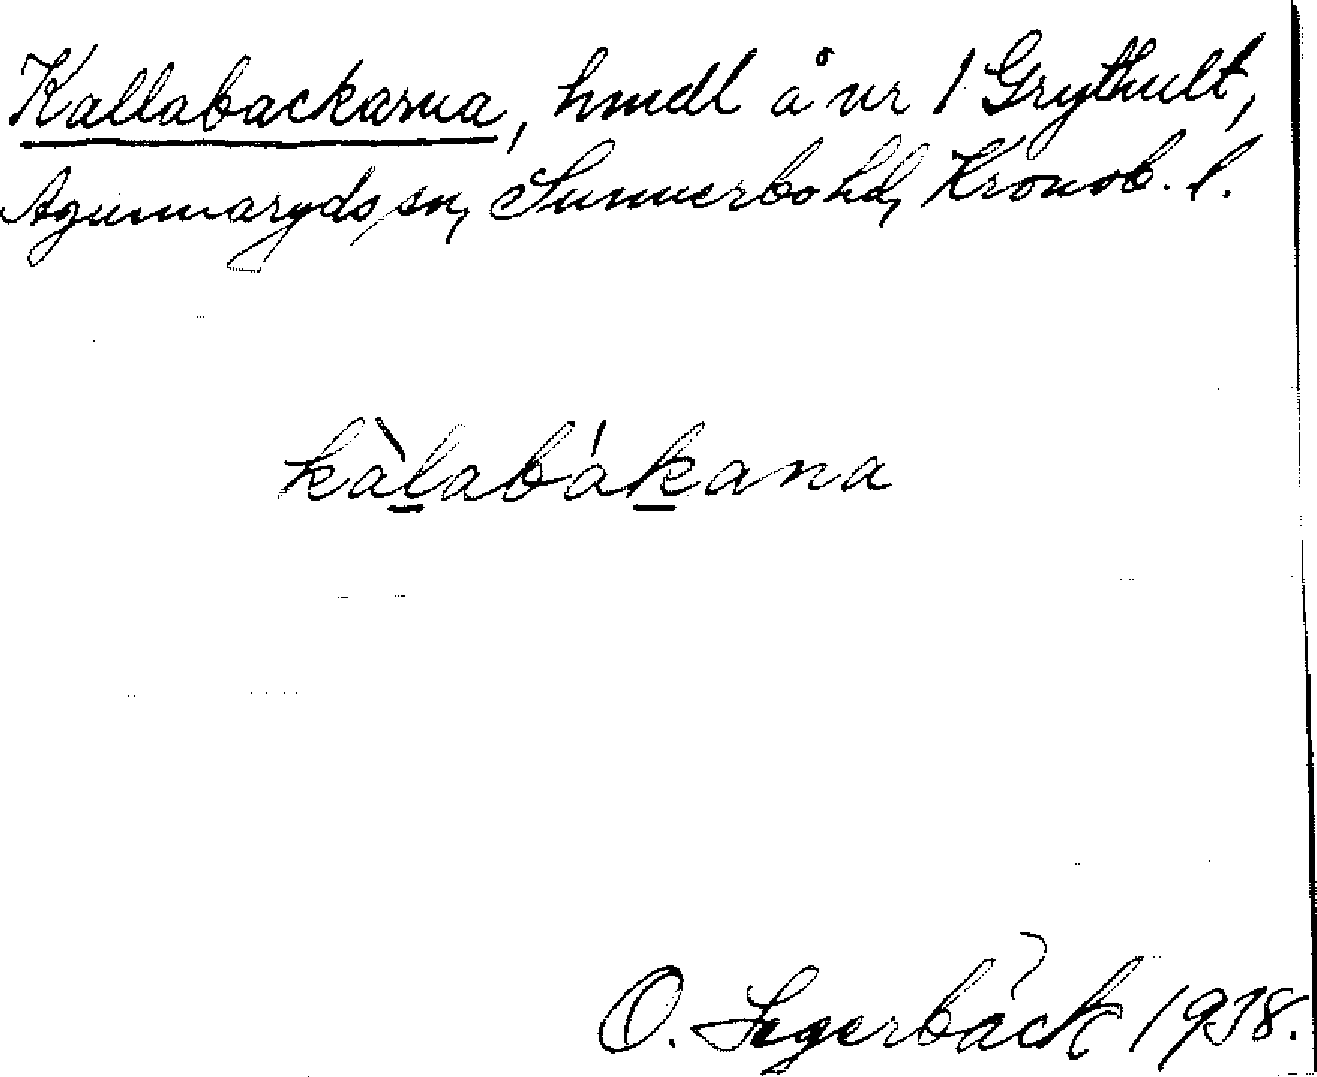 Kallabackarna, hmdl å nr 1 Grythult,
Agunnaryds sn, Sunnerbo hd, Kronob. l.
kàlabákana
O. Segerbäck 1938.